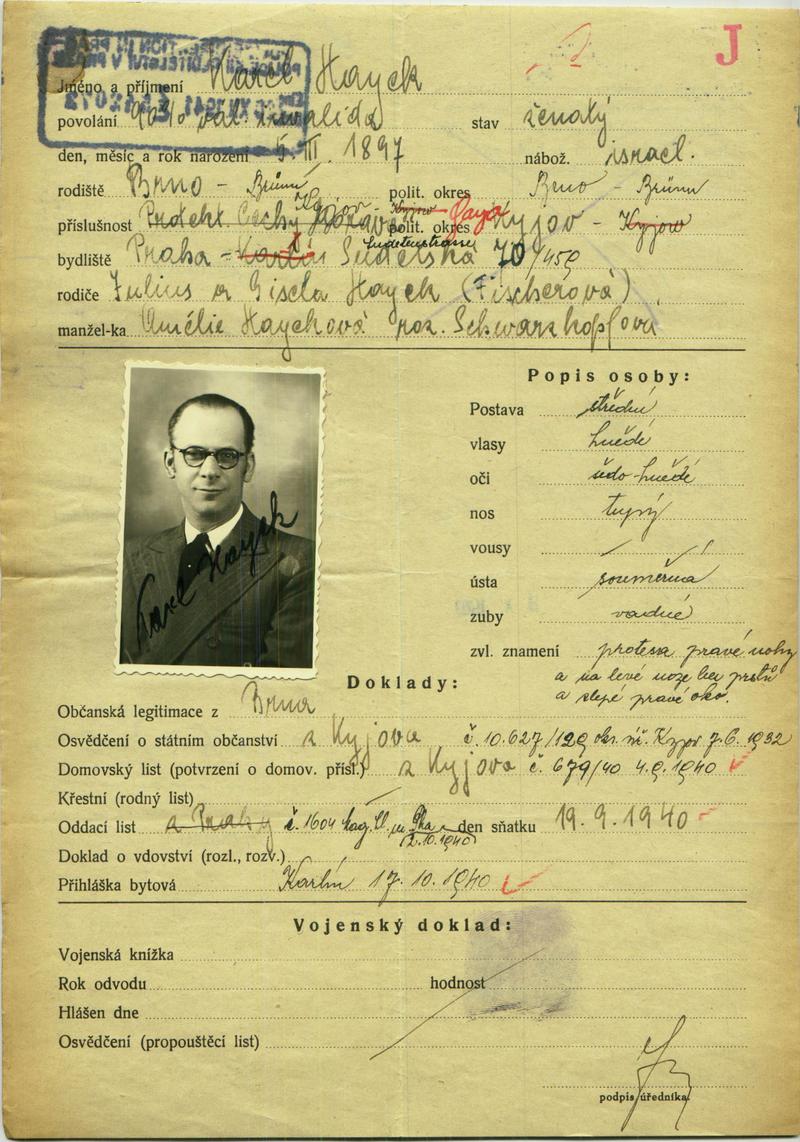 J
Jméno a příjmení Karel Hayek
povolání 90% vál. invalida stav ženatý
den, měsíc a rok narození 5. III. 1897 nábož. israel.
rodiště Brno - Brünn polit. okres Brno - Brünn
příslušnost Protekt. Čechy Kyjov - Kyjow polit. okres Gaya Kyjov - Kyjow
bydliště Praha - Karlín Sudetská 70/459
rodiče Julius a Gisela Hayek (Fischerová)
manžel-ka Amélie Hayeková roz. Schwarzkopfová
Popis osoby:
Postava střední
vlasy hnědé
oči šedo-hnědé
nos tupý
vousy
ústa souměrná
zuby vadné
zvl. znamení protesa pravé nohy
a na levé noze bez prstů
a slepé pravé oko.
Karel Hayek
Doklady:
Občanská legitimace z Brna
Osvědčení o státním občanství z Kyjova č. 10.627/129 okr. úř. Kyjov 7.6.1932
Domovský list (potvrzení o domov. přísl.) z Kyjova č. 679/40 4.9.1940
Křestní (rodný list)
Oddací list z Prahy č. 1604 12.10.1940 den sňatku 19.9.1940
Doklad o vdovství (rozl., rozv.)
Přihláška bytová Karlín 17.10.1940
Vojenský doklad:
Vojenská knížka
Rok odvodu hodnost
Hlášen dne
Osvědčení (propouštěcí list)
podpis úředníka